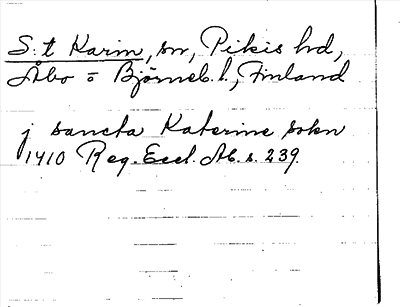 S:t Karin, sn, Pikis hd,
Åbo o Björneb. l., Finland
j sancta Katerine sokn
1410 Reg. Eccl. Ab. s. 239.